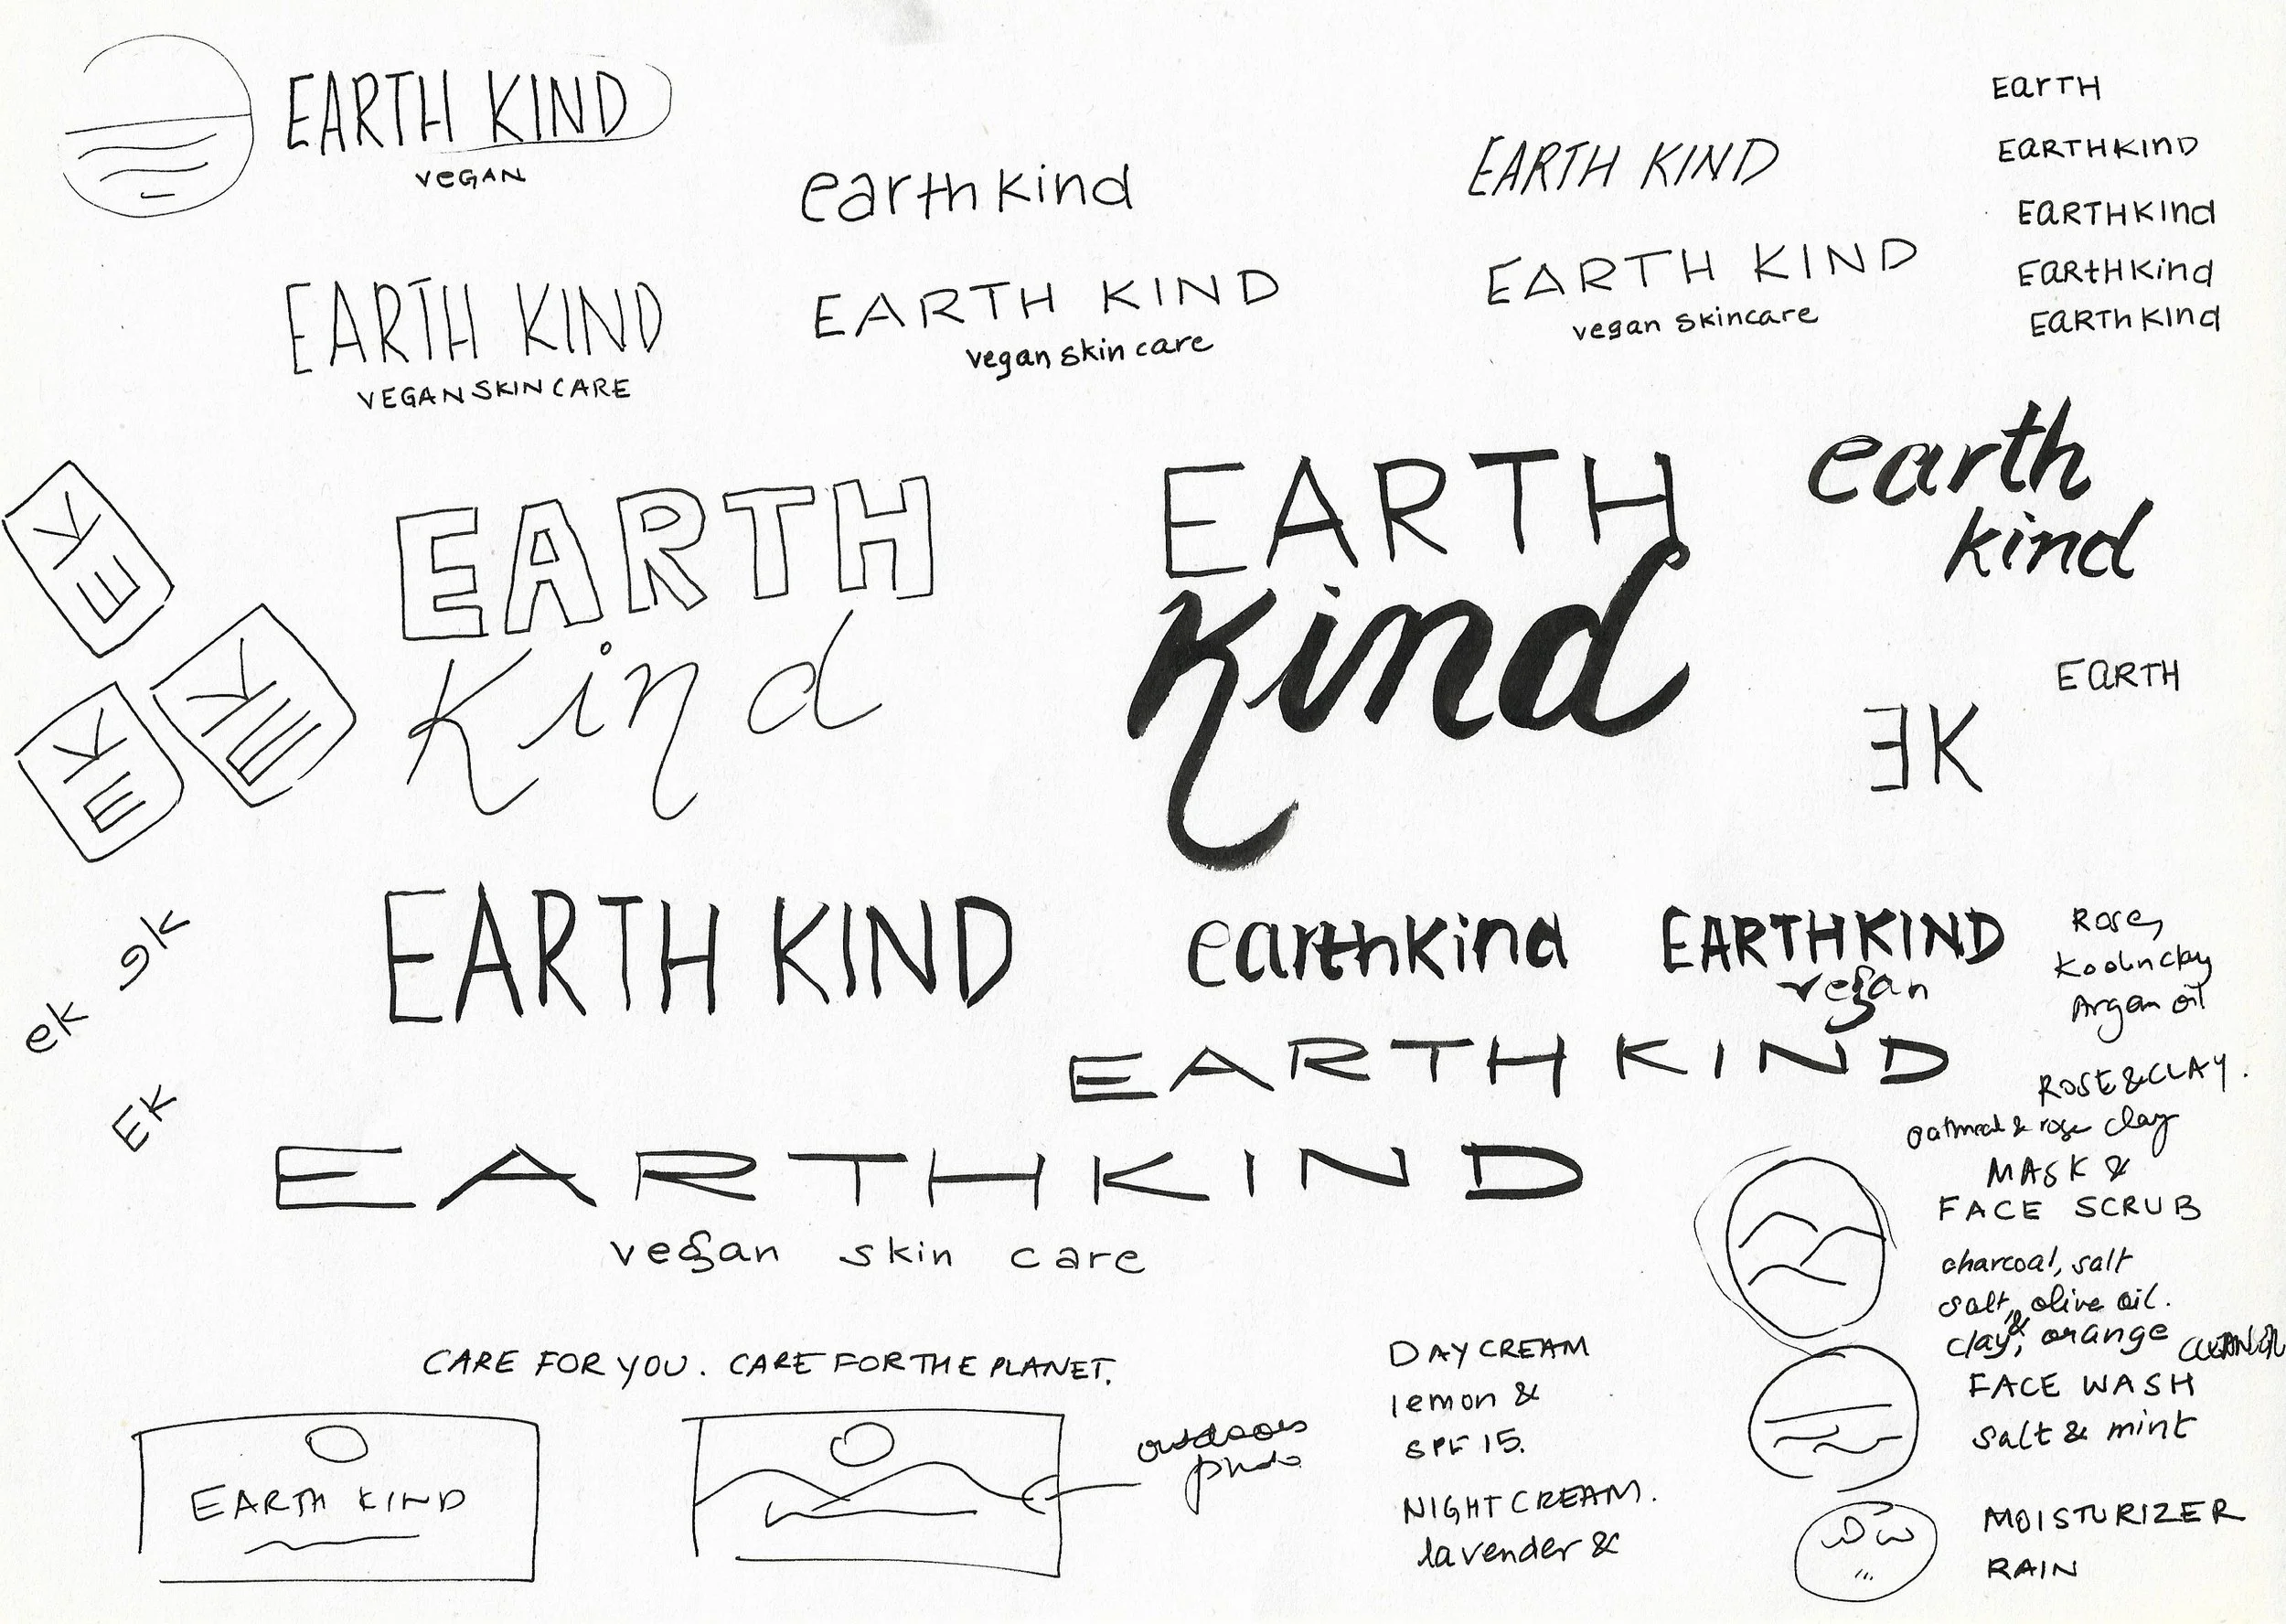 EARTH KIND
VEGAN
earth kind
EARTH KIND
EarTH
EaRTHKInD
EaRTHKInd
EaRtHKind
EaRThKInd
EARTH KIND
VEGAN SKIN CARE
EARTH KIND
vegan skin care
EARTH KIND
vegan skincare
EK
EK
EK
EARTH
kind
EARTH
kind
earth
kind
EaRTH
ƎK
EARTH KIND
earthkind
EARTHKIND
vegan
Rose,
Argan oil
ek
EK
EARTH KIND
ROSE & CLAY.
oatmeal & rose clay
MASK &
FACE SCRUB
EARTHKIND
vegan skin care
charcoal, salt
salt, olive oil.
clay, & orange
CARE FOR YOU. CARE FOR THE PLANET.
EARTH KIND
outdoors
photo
DAY CREAM
lemon &
SPF 15.
NIGHT CREAM.
lavender &
FACE WASH
salt & mint
MOISTURIZER
RAIN